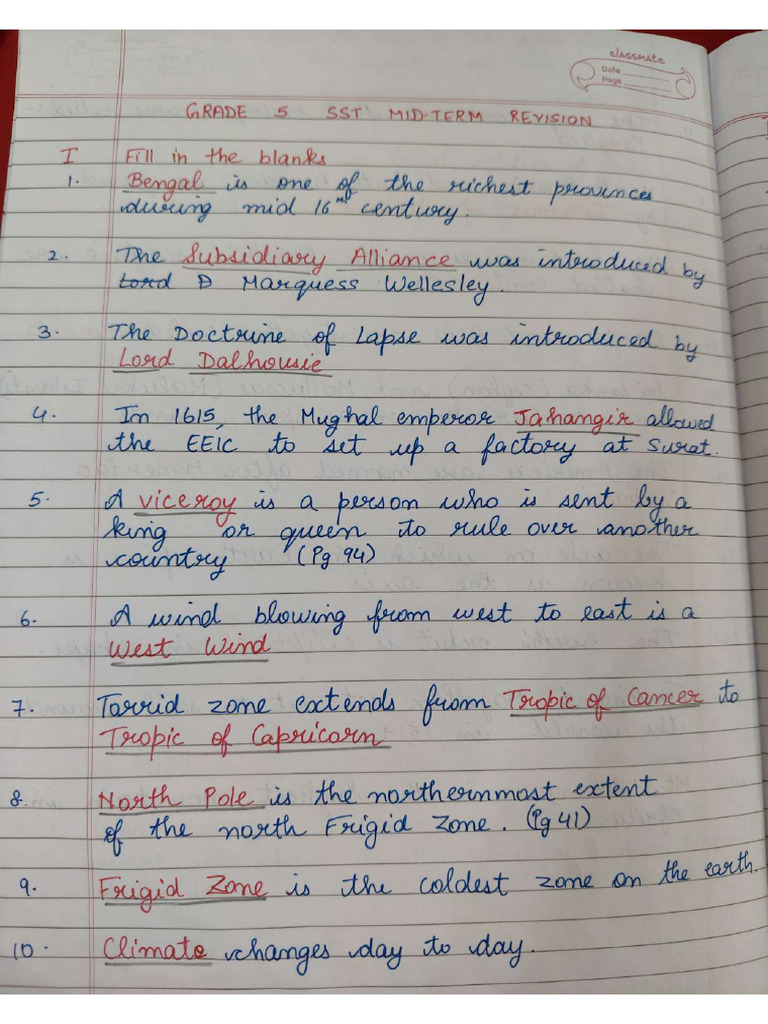 classmate
Date
Page
GRADE 5 SST MID-TERM REVISION
I Fill in the blanks
1. Bengal is one of the richest provinces
during mid 16th century.
2. The Subsidiary Alliance was introduced by
Lord D Marquess Wellesley.
3. The Doctrine of Lapse was introduced by
Lord Dalhousie
4. In 1615, the Mughal emperor Jahangir allowed
the EEIC to set up a factory at Surat.
5. A viceroy is a person who is sent by a
king or queen to rule over another
country (Pg 94)
6. A wind blowing from west to east is a
West Wind
7. Torrid zone extends from Tropic of Cancer to
Tropic of Capricorn
8. North Pole is the northernmost extent
of the north Frigid Zone. (Pg 41)
9. Frigid Zone is the coldest zone on the earth.
10. Climate changes day to day.